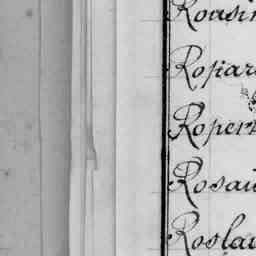 Rousin
Rosiar
Roperz
Rosau
Roslau